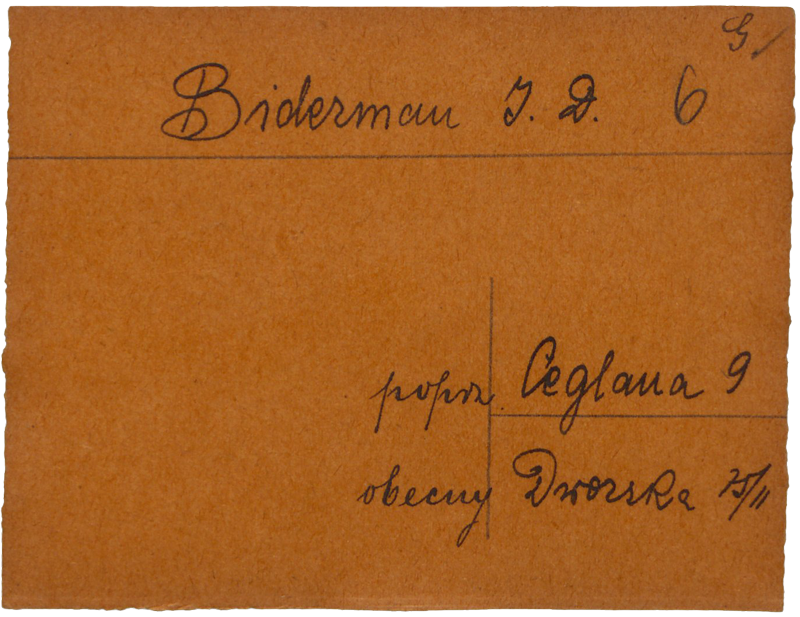 G/
Biderman J. D. 6
poprz Ceglana 9
obecny Dworska 25/11